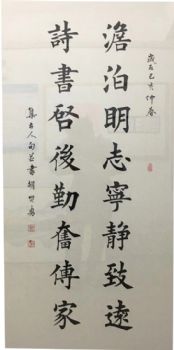 歲在己亥仲春
澹泊明志寧靜致遠
詩書啓後勤奮傳家
集古人句并書